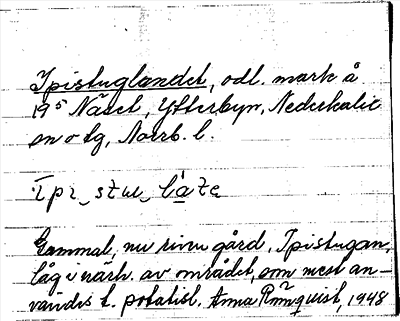 Ipistuglandet, odl. mark å
19⁵ Näset, Ytterbyn, Nederkalix
sn o tg, Norrb. l.
ɩpɩ_stɯ_låta
Gammal, nu riven gård, Ipistugan,
låg i närh. av området, som mest an-
vändes t. potatisl. Anna Rönnquist, 1948